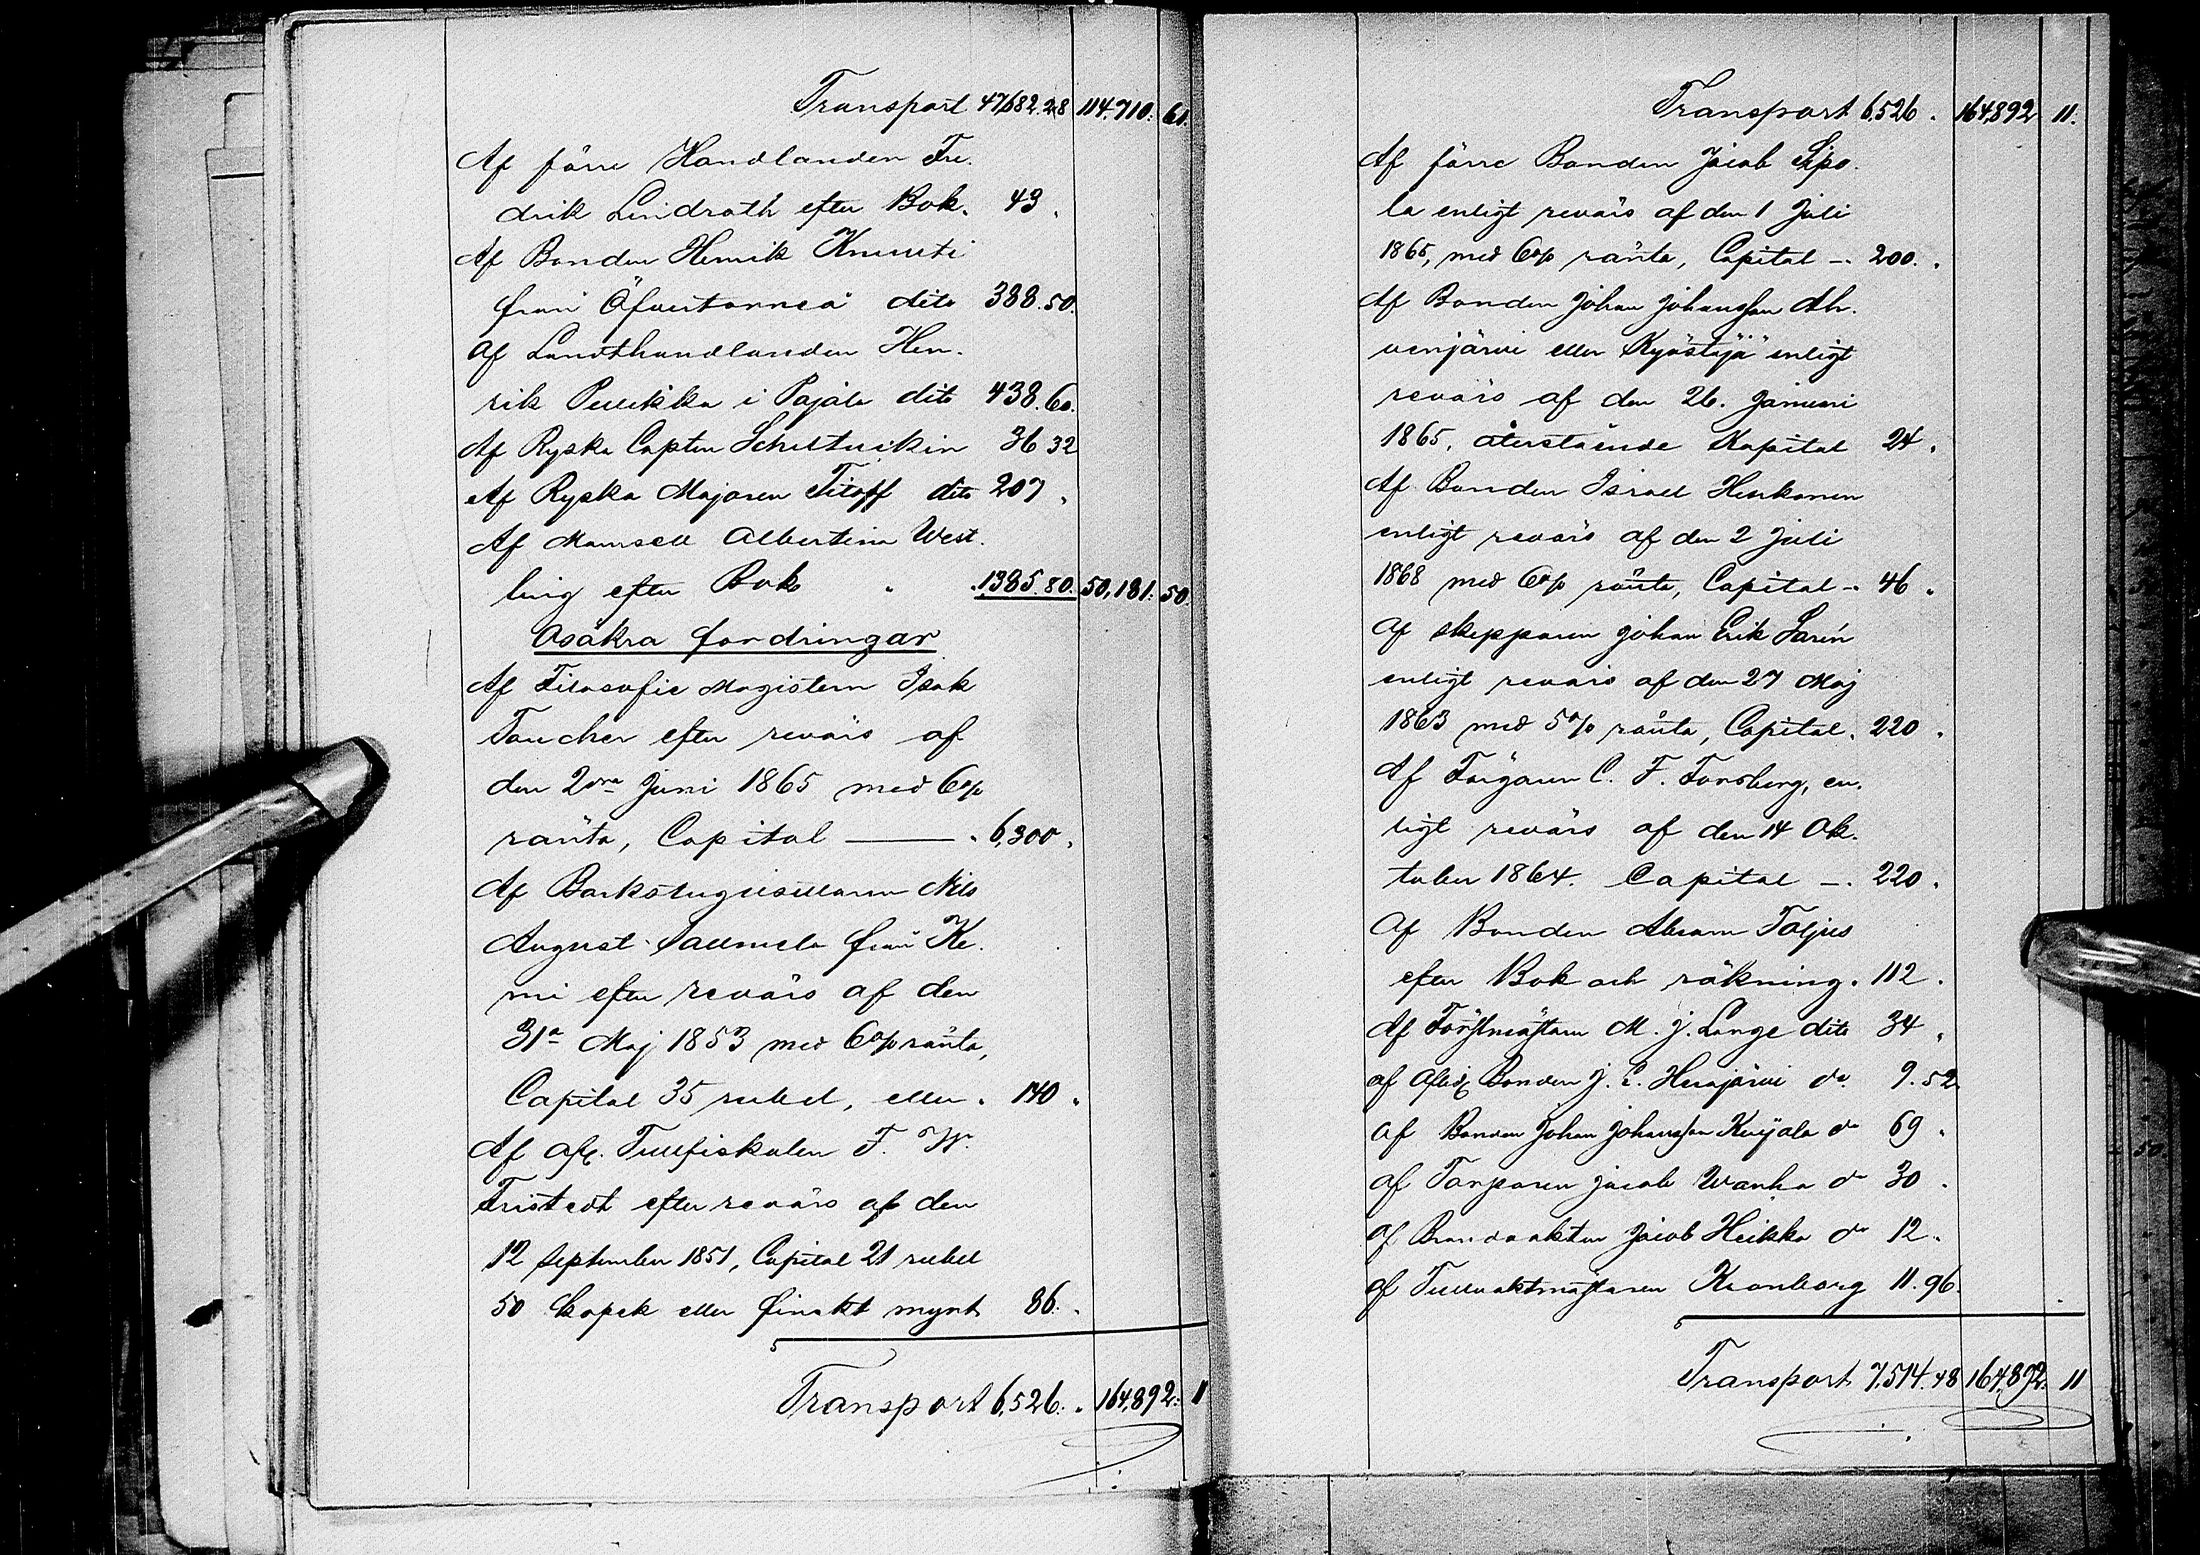 Transport 47,682.28 114,710. 61.
Af förre Handlanden Fre-
drik Lindroth efter Bok. 43.
Af Bonden Henrik Knuuti
från Öfvertorneå dito 388.50.
Af Landthandlanden Hen-
rik Pulikka i Pajala dito 438.60.
Af Ryska Capten 36 32
Af Ryska Majoren Titoff dito 207.
Af Mamsell Albertina West-
ling efter Bok 1385.80. 50,181. 50.
Osäkra fordringar
Af Filosofie Magistern Isak
Faucher efter revärs af
den 2dra Juni 1865 med 6%
ränta, Capital — 6,300.
Af Barkstugusittaren Nils
August Paumela från Ke-
mi efter revärs af den
31a Maj 1853 med 6% ränta,
Capital 35 rubel, eller. 140.
Af afl. Tullfiskalen F. W.
Fristedt efter revärs af den
12 September 1851, Capital 21 rubel
50 kopek eller finskt mynt 86.
Transport 6,526. 164,892. 11
Transport 6,526. 164,892 11.
Af förre Bonden Jacob Sipo-
la enligt revärs af den 1 Juli
1865, med 6% ränta, Capital —. 200.
Af Bonden Johan Johansson Ah-
venjärvi eller Kyöstäjä enligt
revärs af den 26. Januari
1865. återstående Kapital 24.
Af Bonden Israel Heikonen
enligt revärs af den 2 Juli
1868 med 6% ränta, Capital —. 46.
Af skepparen Johan Erik Sarén
enligt revärs af den 27 Maj
1863 med 5% ränta, Capital. 220.
Af Färgaren C. F. Forsberg, en-
ligt revärs af den 14 Ok-
tober 1864. Capital —. 220.
Af Bonden Abram Taljus
efter Bok och räkning. 112.
Af Forstmästarn M. J. Lange dito 34.
af Bonden J. E. Herajärvi do. 9.52
af Bonden Johan Johansson Kuijala do 69.
af Torparen Jacob Wanha do 30.
af Brandvakten Jacob Heikka do 12.
af Tullvaktmästaren Kronborg 11.96.
Transport 7,514.48 164,892. 11